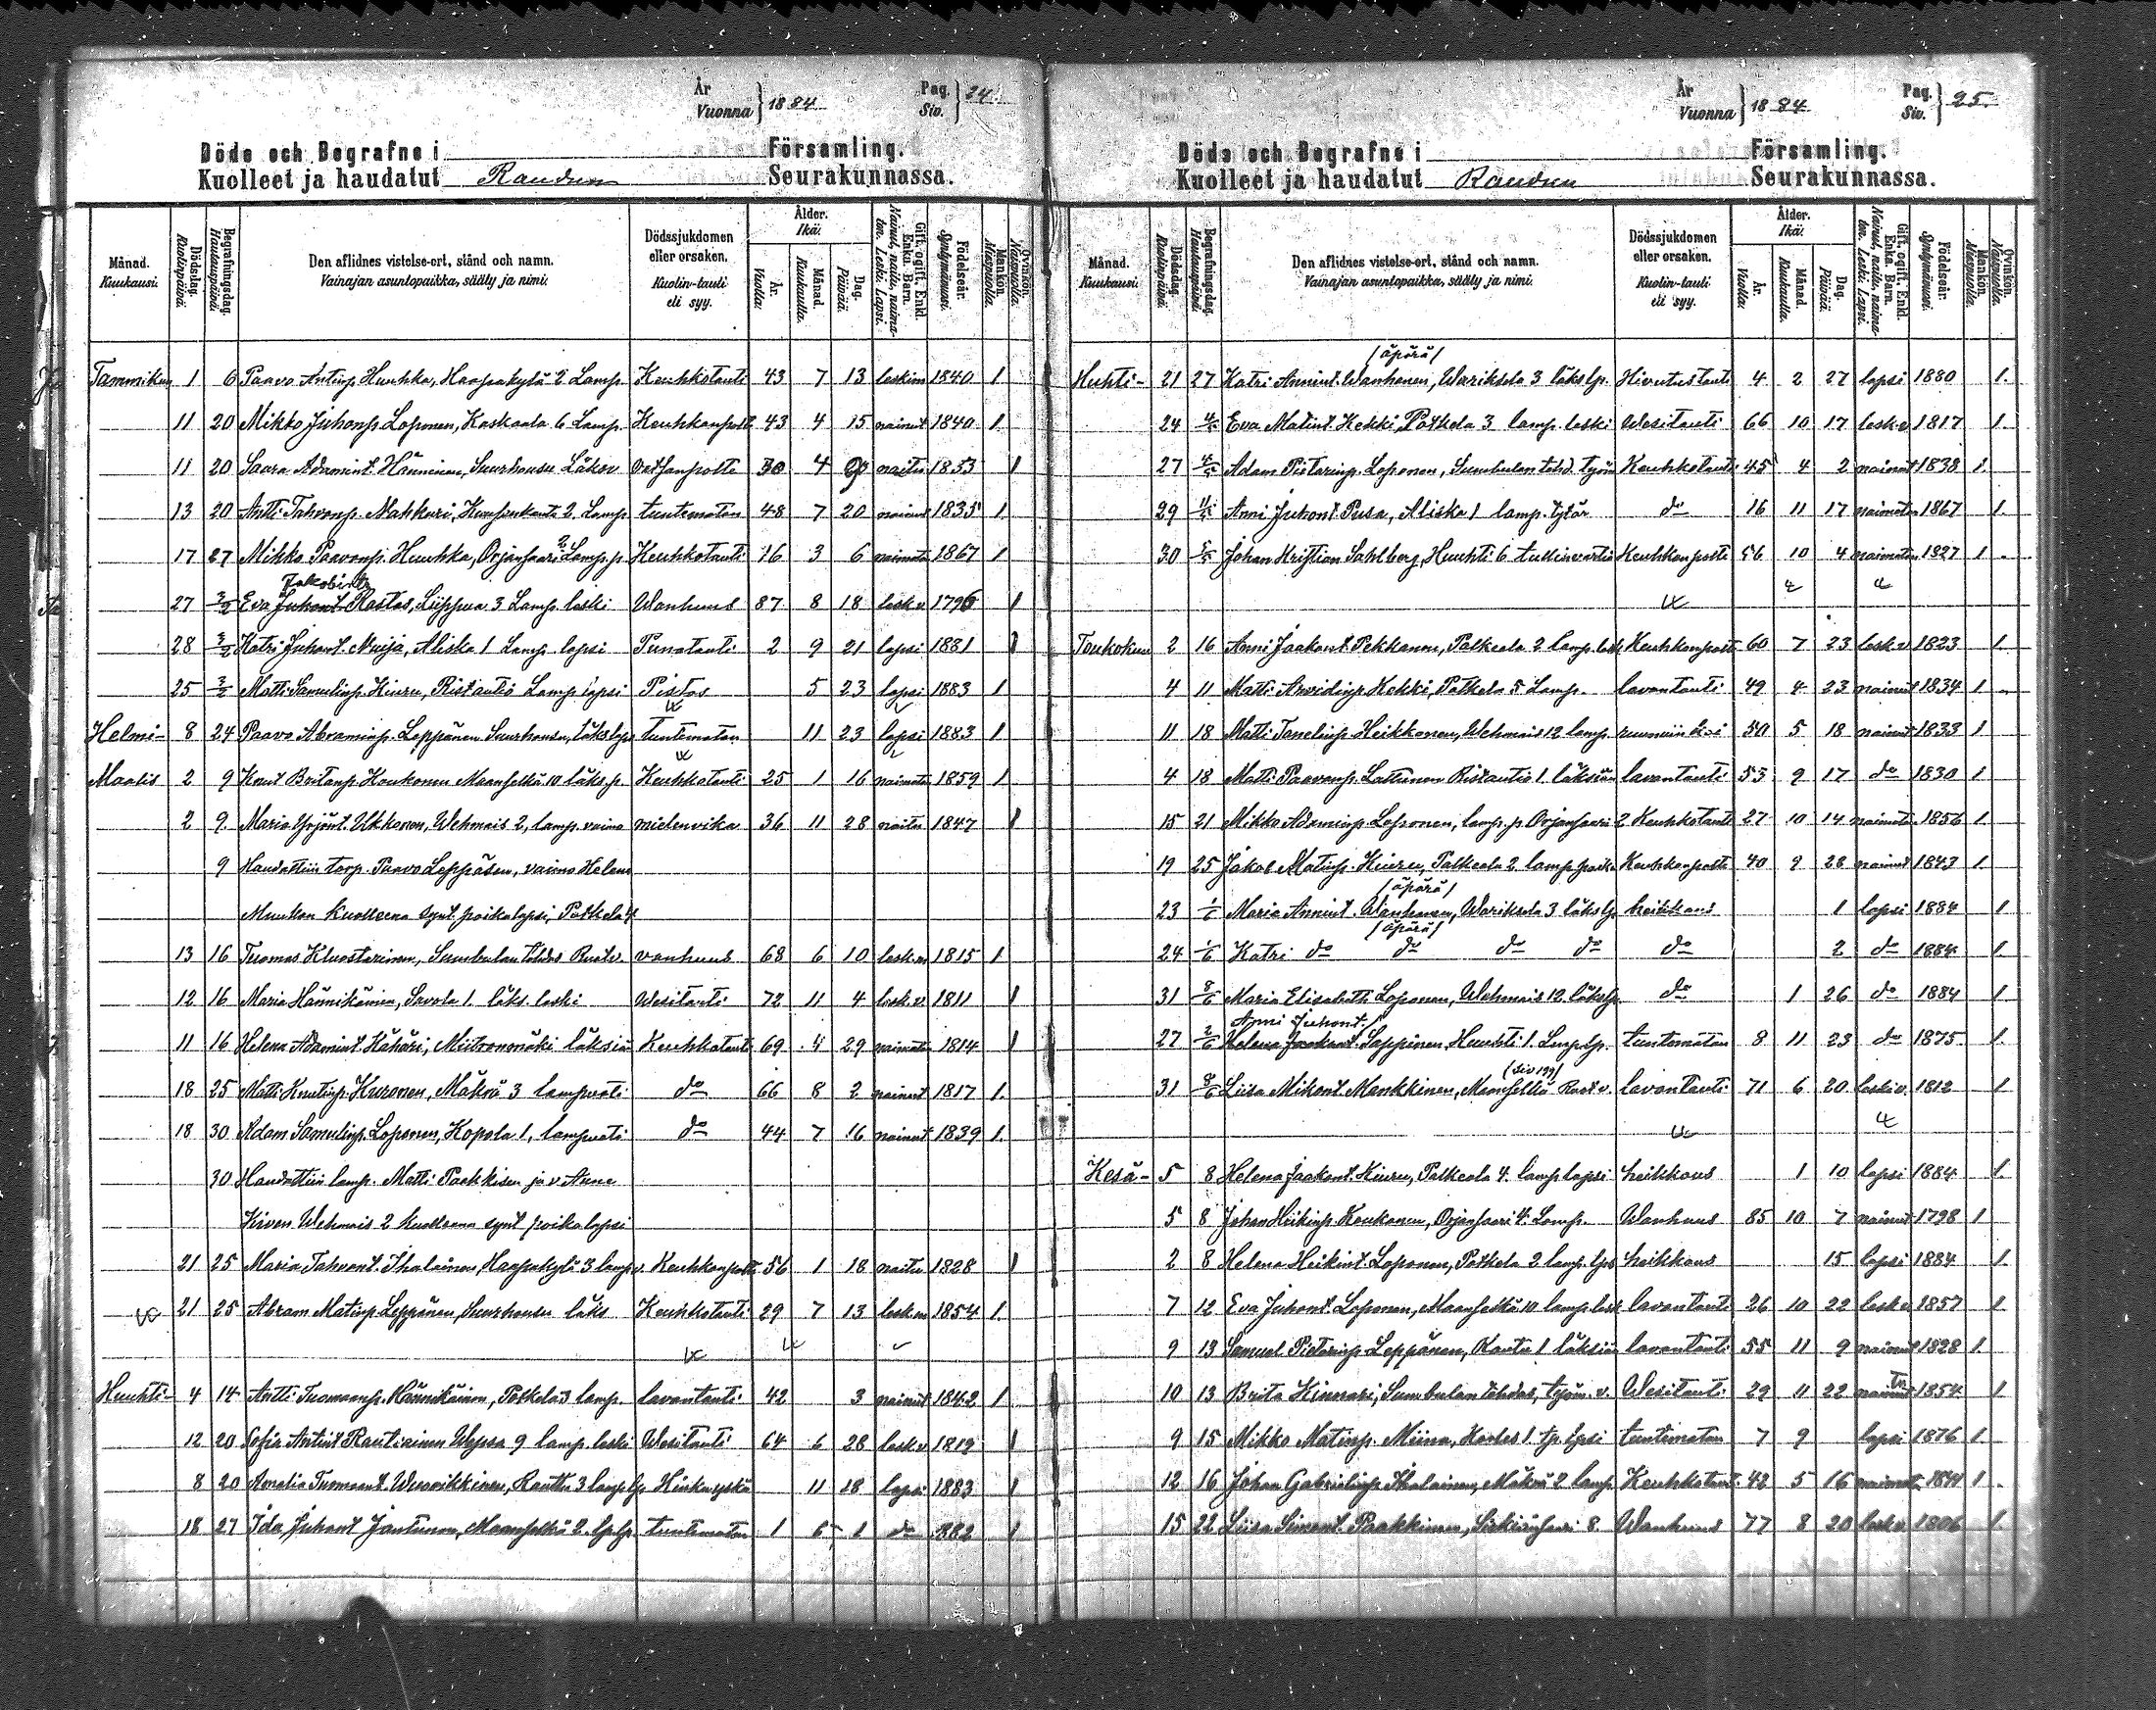 År Vuonna } 1884 Pag. Siv. } 24.
Döde och Begrafne i Församling.
Kuolleet ja haudatut Raudun Seurakunnassa.
Månad. Kuukausi. Dödsdag. Kuolinpäivä. Begrafningsdag. Hautauspäivä. Den aflidnes vistelse-ort, stånd och namn. Vainajan asuntopaikka, sääty ja nimi. Dödssjukdomen eller orsaken. Kuolin-tauti eli syy. Ålder. Ikä. År. Vuotta. Månad. Kuukautta. Dag. Päivää. Gift, ogift, Enkl. Enka. Barn. Nainut, naitu, naimaton. Leski. Lapsi. Födelseår. Syntymävuosi. Mankön. Miespuolia. Qvinkön. Naispuolia.
Tammikuu 1 6 Paavo Antinp. Huuhka, Haapakylä 2 Lamp. Keuhkotauti 43 7 13 leskim 1840 1
11 20 Mikko Juhonp. Loponen, Kaskaala 6 Lamp. Keuhkonpolte 43 4 15 nainut 1840 1.
11 20 Saara Adamint. Hänninen, Suurhousu Läksv 30 4 naitu 1853 1
13 20 Antti Tahvonp. Nahkuri, 2 Lamp tuntematon 48 7 20 nainut 1835 1
17 27 Mikko Paavonp. Huuhka, Orjansaari 2 Lamp.p Keuhkotauti 16 3 6 naimato 1867 1
Jakobintr
27 3/2 Eva Juhont. Rastas, Liippua 3 Lamp. leski Wanhuus 87 8 18 lesk.v 1796 1
28 3/2 Katri Juhont. Muija, Aliska 1 Lamp. lapsi Punatauti 2 9 21 lapsi 1881 1
25 3/2 Matti Samulinp. Kiuru, Ristautio Lamp. lapsi Pistos 5 23 lapsi 1883 1
Helmi- 8 24 Paavo Abraminp. Leppänen Suurhousu, läks laps tuntematon 11 23 lapsi 1883 1
Maalis 2 9 Knut Britanp. Koukonen Maanselkä 10 läks.p. Keuhkotauti 25 1 16 naimato 1859 1
2 9. Maria Yrjönt. Ukkonen, Wehmais 2, lamp. vaimo mielenvika 36 11 28 naitu 1847 1
9 Haudattiin torp. Paavo Leppäsen, vaimo Helena
kuolleena synt. poikalapsi, Potkela 4
13 16 Tuomas Kluostarinen, Sumbulan tehdas Ruotv. vanhuus 68 6 10 lesk.m 1815 1.
12 16 Maria Hännikäinen, Savola 1. läks. leski Wesitauti 72 11 4 lesk.v. 1811 1
11 16 Helena Adamint. Kähäri, Miitronmäki läksiä Keuhkotauti 69 4 29 naimaton 1814 1
18 25 Matti Knutinp. Kuronen, Mäkrä 3 lampuoti do 66 8 2 nainut 1817 1.
18 30 Adam Samulinp. Loponen, Kopola 1, lampuoti do 44 7 16 nainut 1839 1.
30 Haudattiin lamp. Matti Paakkisen ja v. Anna
Kirven Wehmais 2 kuolleena synt poikalapsi
21 25 Maria Tahvont. Ihalainen, Haapakylä 3 lamp.v. Keuhkonpolte 56 1 18 naitu 1828 1
21 25 Abram Matinp. Leppänen, Suurhousu läks Keuhkotauti 29 7 13 lesk.m 1854 1.
Huhti- 4 14 Antti Tuomaanp. Hännikäinen, Potkela 3 lamp. lavantauti 42 3 nainut 1842 1
12 20 Sofia Antint Rautiainen Wepsa 9 lamp. leski Wesitauti 64 6 28 lesk.v 1819 1
8 20 Amalia Tuomaant. Wuorikkinen, Rautu 3 lamp.lp. Hinkuyskä 11 18 lapsi 1883 1
18 27 Ida Juhont Jantunen, Maanselkä 2. lp. tuntematon 1 6 1 do 1882 1
År Vuonna } 1884 Pag. Siv. } 25.
Döde och Begrafne i Församling.
Kuolleet ja haudatut Raudun Seurakunnassa.
Månad. Kuukausi. Dödsdag. Kuolinpäivä. Begrafningsdag. Hautauspäivä. Den aflidnes vistelse-ort, stånd och namn. Vainajan asuntopaikka, sääty ja nimi. Dödssjukdomen eller orsaken. Kuolin-tauti eli syy. Ålder. Ikä. År. Vuotta. Månad. Kuukautta. Dag. Päivää. Gift, ogift, Enkl. Enka. Barn. Nainut, naitu, naimaton. Leski. Lapsi. Födelseår. Syntymävuosi. Mankön. Miespuolia. Qvinkön. Naispuolia.
/äpärä/
Huhti- 21 27 Katri Annint. Wanhanen, Wariksela 3 läks lp. 4 2 27 lapsi 1880 1.
24 4/5 Eva Matint. Kekki, Potkela 3 lamp. leski Wesitauti 66 10 17 lesk.v 1817 1.
27 4/5 Adam Pietarinp. Loponen, Sumbulan tehd. työm Keuhkotauti 45 4 2 nainut 1838 1.
29 11/5 Anni Juhont. Pusa, Aliska 1 lamp. tytär do 16 11 17 naimaton 1867 1.
30 5/5 Johan Kristian Sahlberg, Huuhti 6 tullinvartia Keuhkonpolte 56 10 4 naimaton 1827 1
Toukokuu 2 16 Anni Jaakont. Pekkanen, Palkeala 2 lamp. lesk Keuhkonpolte 60 7 23 lesk.v 1823 1.
4 11 Matti Arvidinp. Kekki, Potkela 5 Lamp. lavantauti 49 4 23 nainut 1834 1
11 18 Matti Tanelinp. Heikkonen, Wehmais 12 lamp. 50 5 18 nainut 1833 1
4 18 Matti Paavonp. Lattunen Ristautio 1. läksiän lavantauti 53 9 17 do 1830 1
15 21 Mikko Adaminp. Loponen, lamp. p Orjansaari 2 Keuhkotauti 27 10 14 naimato 1856 1
19 25 Jakob Matinp. Kiuru, Palkeala 2 lamp. poika Keuhkonpolte 40 9 28 nainut 1843 1.
/äpärä/
23 1/6 Maria Annint. Wanhanen, Wariksela 3 läks lp heikkous 1 lapsi 1884 1
/äpärä/
24 1/6 Katri do do do do do 2 do 1884 1.
31 8/6 Maria Elisabeth Loponen, Wehmais 12 läks lp. do 1 26 do 1884 1.
Anni Juhont.
27 2/6 Helena Jaakont. Lappinen Huuhti 1. Lamp lp. tuntematon 8 11 23 do 1875 1.
(siv 199)
31 8/6 Liisa Mikont. Mankkinen, Maanselkä Ruot v. lavantauti 71 6 20 leski v. 1812 1
Kesä- 5 8 Helena Jaakont. Kiuru, Palkeala 4. lamp lapsi heikkous 1 10 lapsi 1884 1.
5 8 Johan Heikinp. Koukonen, Orjansaari 4. Lamp. Wanhuus 85 10 7 nainut 1798 1
2 8 Helena Heikint. Loponen, Potkela 2 lamp. lps heikkous 15 lapsi 1884 1.
7 12 Eva Juhont. Loponen, Maanselkä 10 lamp. lesk lavantauti 26 10 22 lesk.v 1857 1
9 13 Samuel Pietarinp. Leppänen, Rautu 1 läksiä lavantauti 55 11 9 nainut 1828 1.
10 13 Brita Kinnari, Sumbulan tehdas, työm. v. Wesitauti 29 11 22 naitu 1854 1
9 15 Mikko Matinp. Miina, 1. tp. lpsi tuntematon 7 9 lapsi 1876 1
12 16 Johan Gabrielinp. Ihalainen, Mäkrä 2 lamp. Keuhkotaut. 42 5 16 1841 1
15 22 Liisa Simont. Paakkinen, 8. Wanhuus 77 8 20 lesk.v 1806 1.